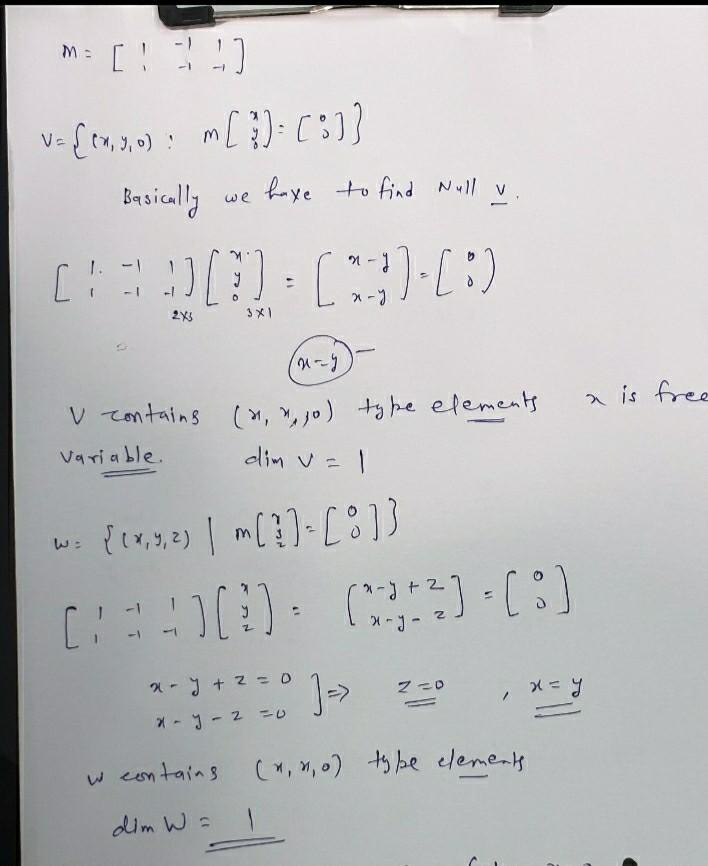 m = [ 1 -1 1
1 -1 -1 ]
V = { (x, y, 0) : m [ x y 0 ] = [ 0 0 ] }
Basically we have to find Null V.
[ 1 -1 1
1 -1 -1 ] 2x3 [ x y 0 ] 3x1 = [ x-y
x-y ] = [ 0 0 ]
x=y
V contains (x, x, 0) type elements x is free
variable. dim V = 1
W = { (x, y, z) | m [ x y z ] = [ 0 0 ] }
[ 1 -1 1
1 -1 -1 ] [ x y z ] = [ x-y+z
x-y-z ] = [ 0 0 ]
x-y+z=0
x-y-z=0 ] ⇒ z=0 , x=y
W contains (x, x, 0) type elements
dim W = 1